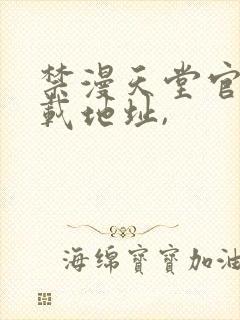 禁漫天堂官
载地址,
海绵寶寶加油